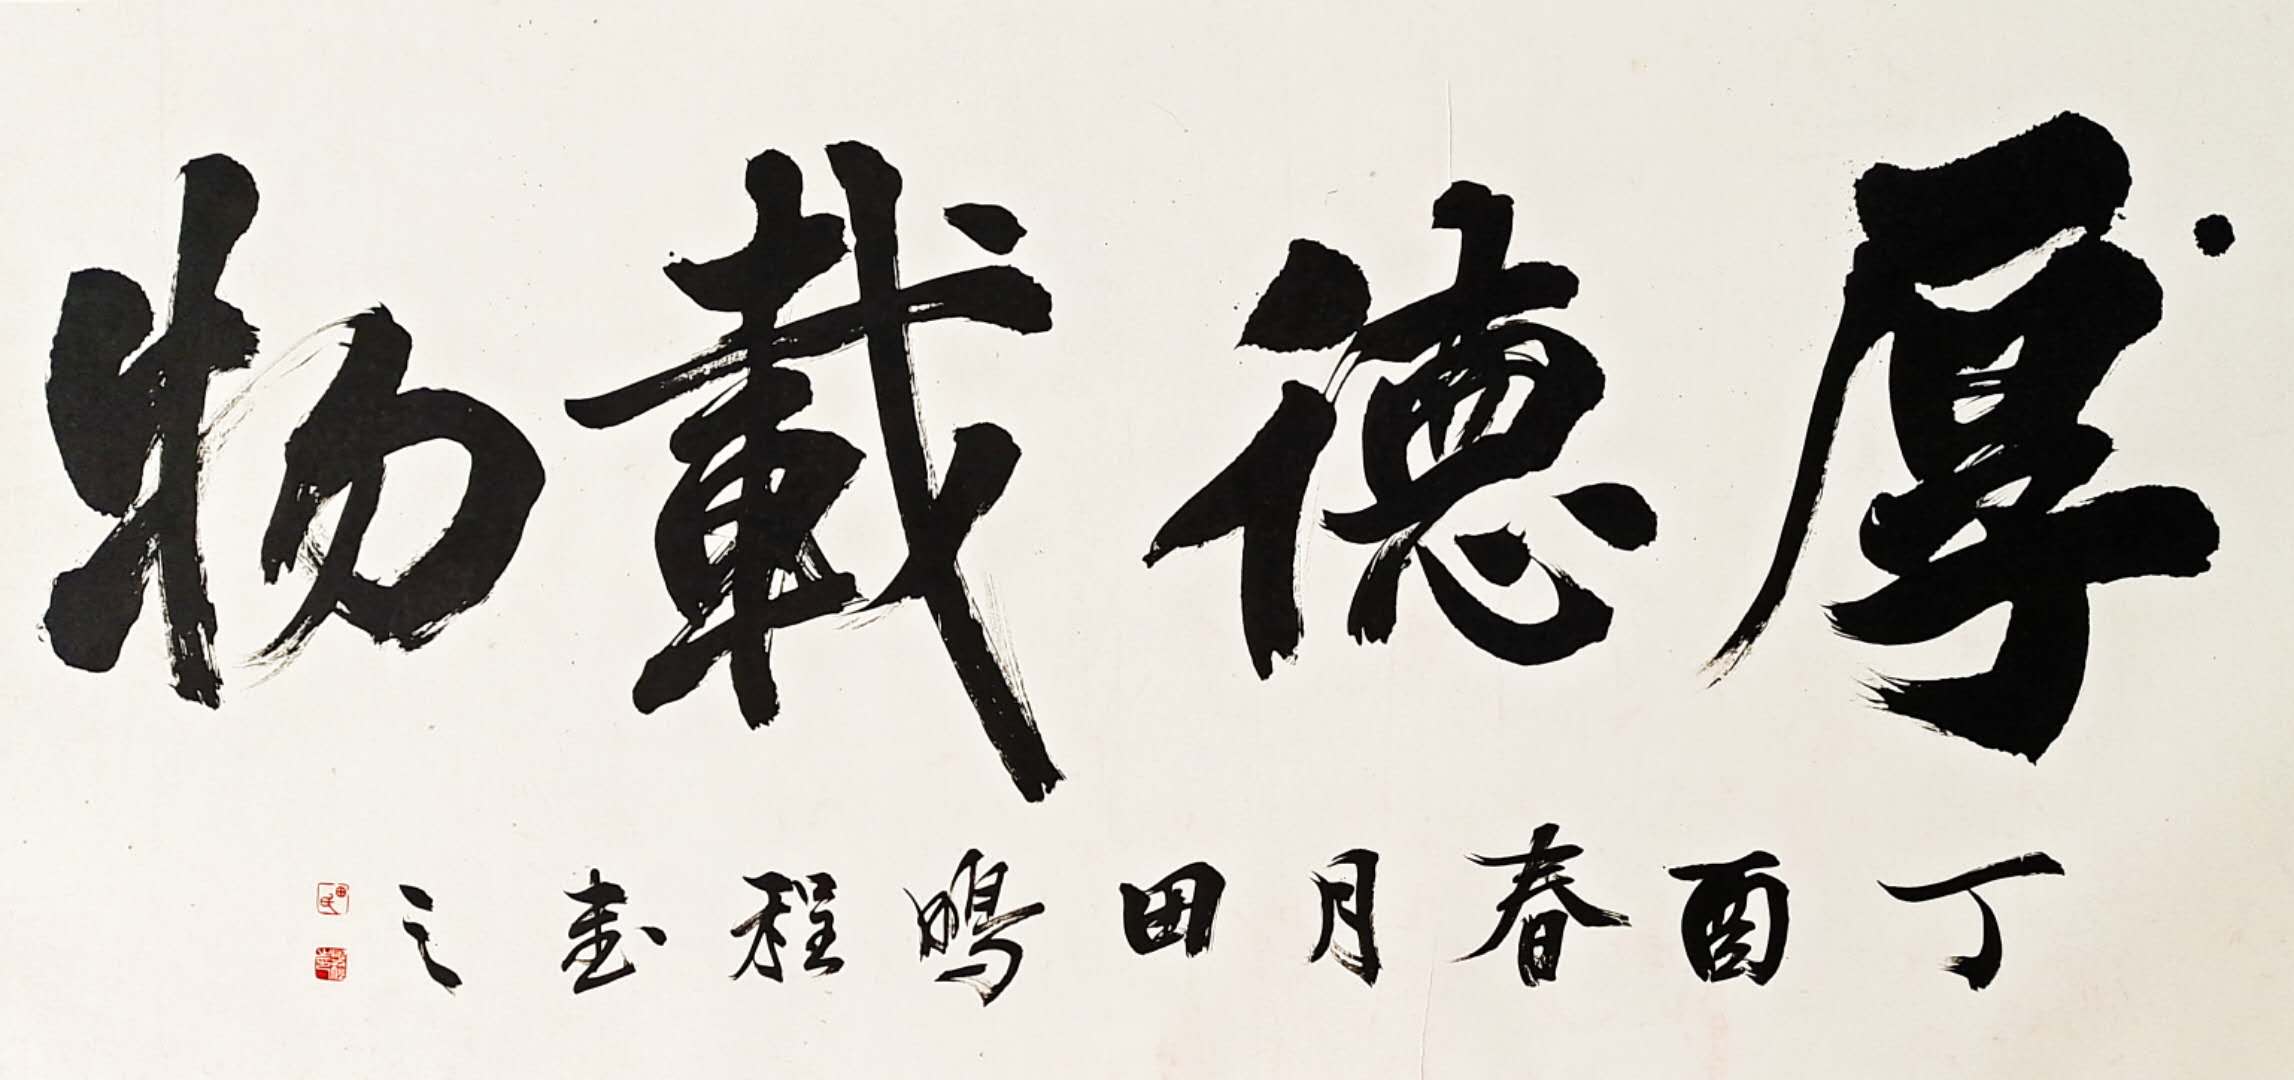 厚德載物
丁酉春月田鳴程書之